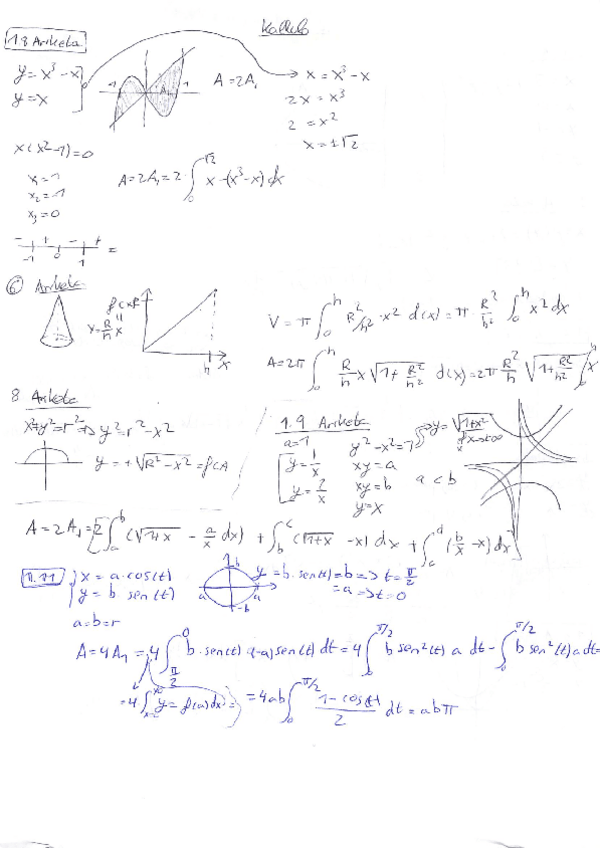 Kalkulo
1.8 Ariketa
y = x³ - x
y = x
A = 2A₁
x = x³ - x
2x = x³
2 = x²
x = ±√2
x(x² - 1) = 0
x₁ = 1
x₂ = -1
x₃ = 0
A = 2A₁ = 2 · ∫₀^√2 x - (x³ - x) dx
- + - +
-1 0 1 =
⑥ Ariketa
f(x)
y = R/h x
h x
V = π ∫₀^h R²/h² · x² d(x) = π · R²/h² ∫₀^h x² dx
A = 2π ∫₀^h R/h x √(1 + R²/h²) d(x) = 2π R²/h √(1 + R²/h²) ∫₀^h x
8 Ariketa
x² + y² = r² => y² = r² - x²
y = +√(R² - x²) = f(x)
1.9 Ariketa
a = 1
y = 1/x
y = 2/x
y² - x² = 1
xy = a
xy = b
y = x
a < b
y = √(1+x²)
A = 2A₁ = 2[∫ₐ^b (√(1+x) - a/x dx) + ∫_b^c (√(1+x) - x) dx + ∫_c^d (b/x - x) dx]
II.11
x = a · cos(t)
y = b sen(t)
a a b -b
y = b · sen(t) = b => t = π/2
= a => t = 0
a = b = r
A = 4A₁ = 4 ∫_{π/2}^0 b · sen(t) (-a) sen(t) dt = 4 ∫₀^{π/2} b sen²(t) a dt - ∫₀^{π/2} b sen²(t) a dt =
= 4 ∫ y = f(x) dx =
= 4ab ∫₀^{π/2} (1 - cos(t))/2 dt = abπ